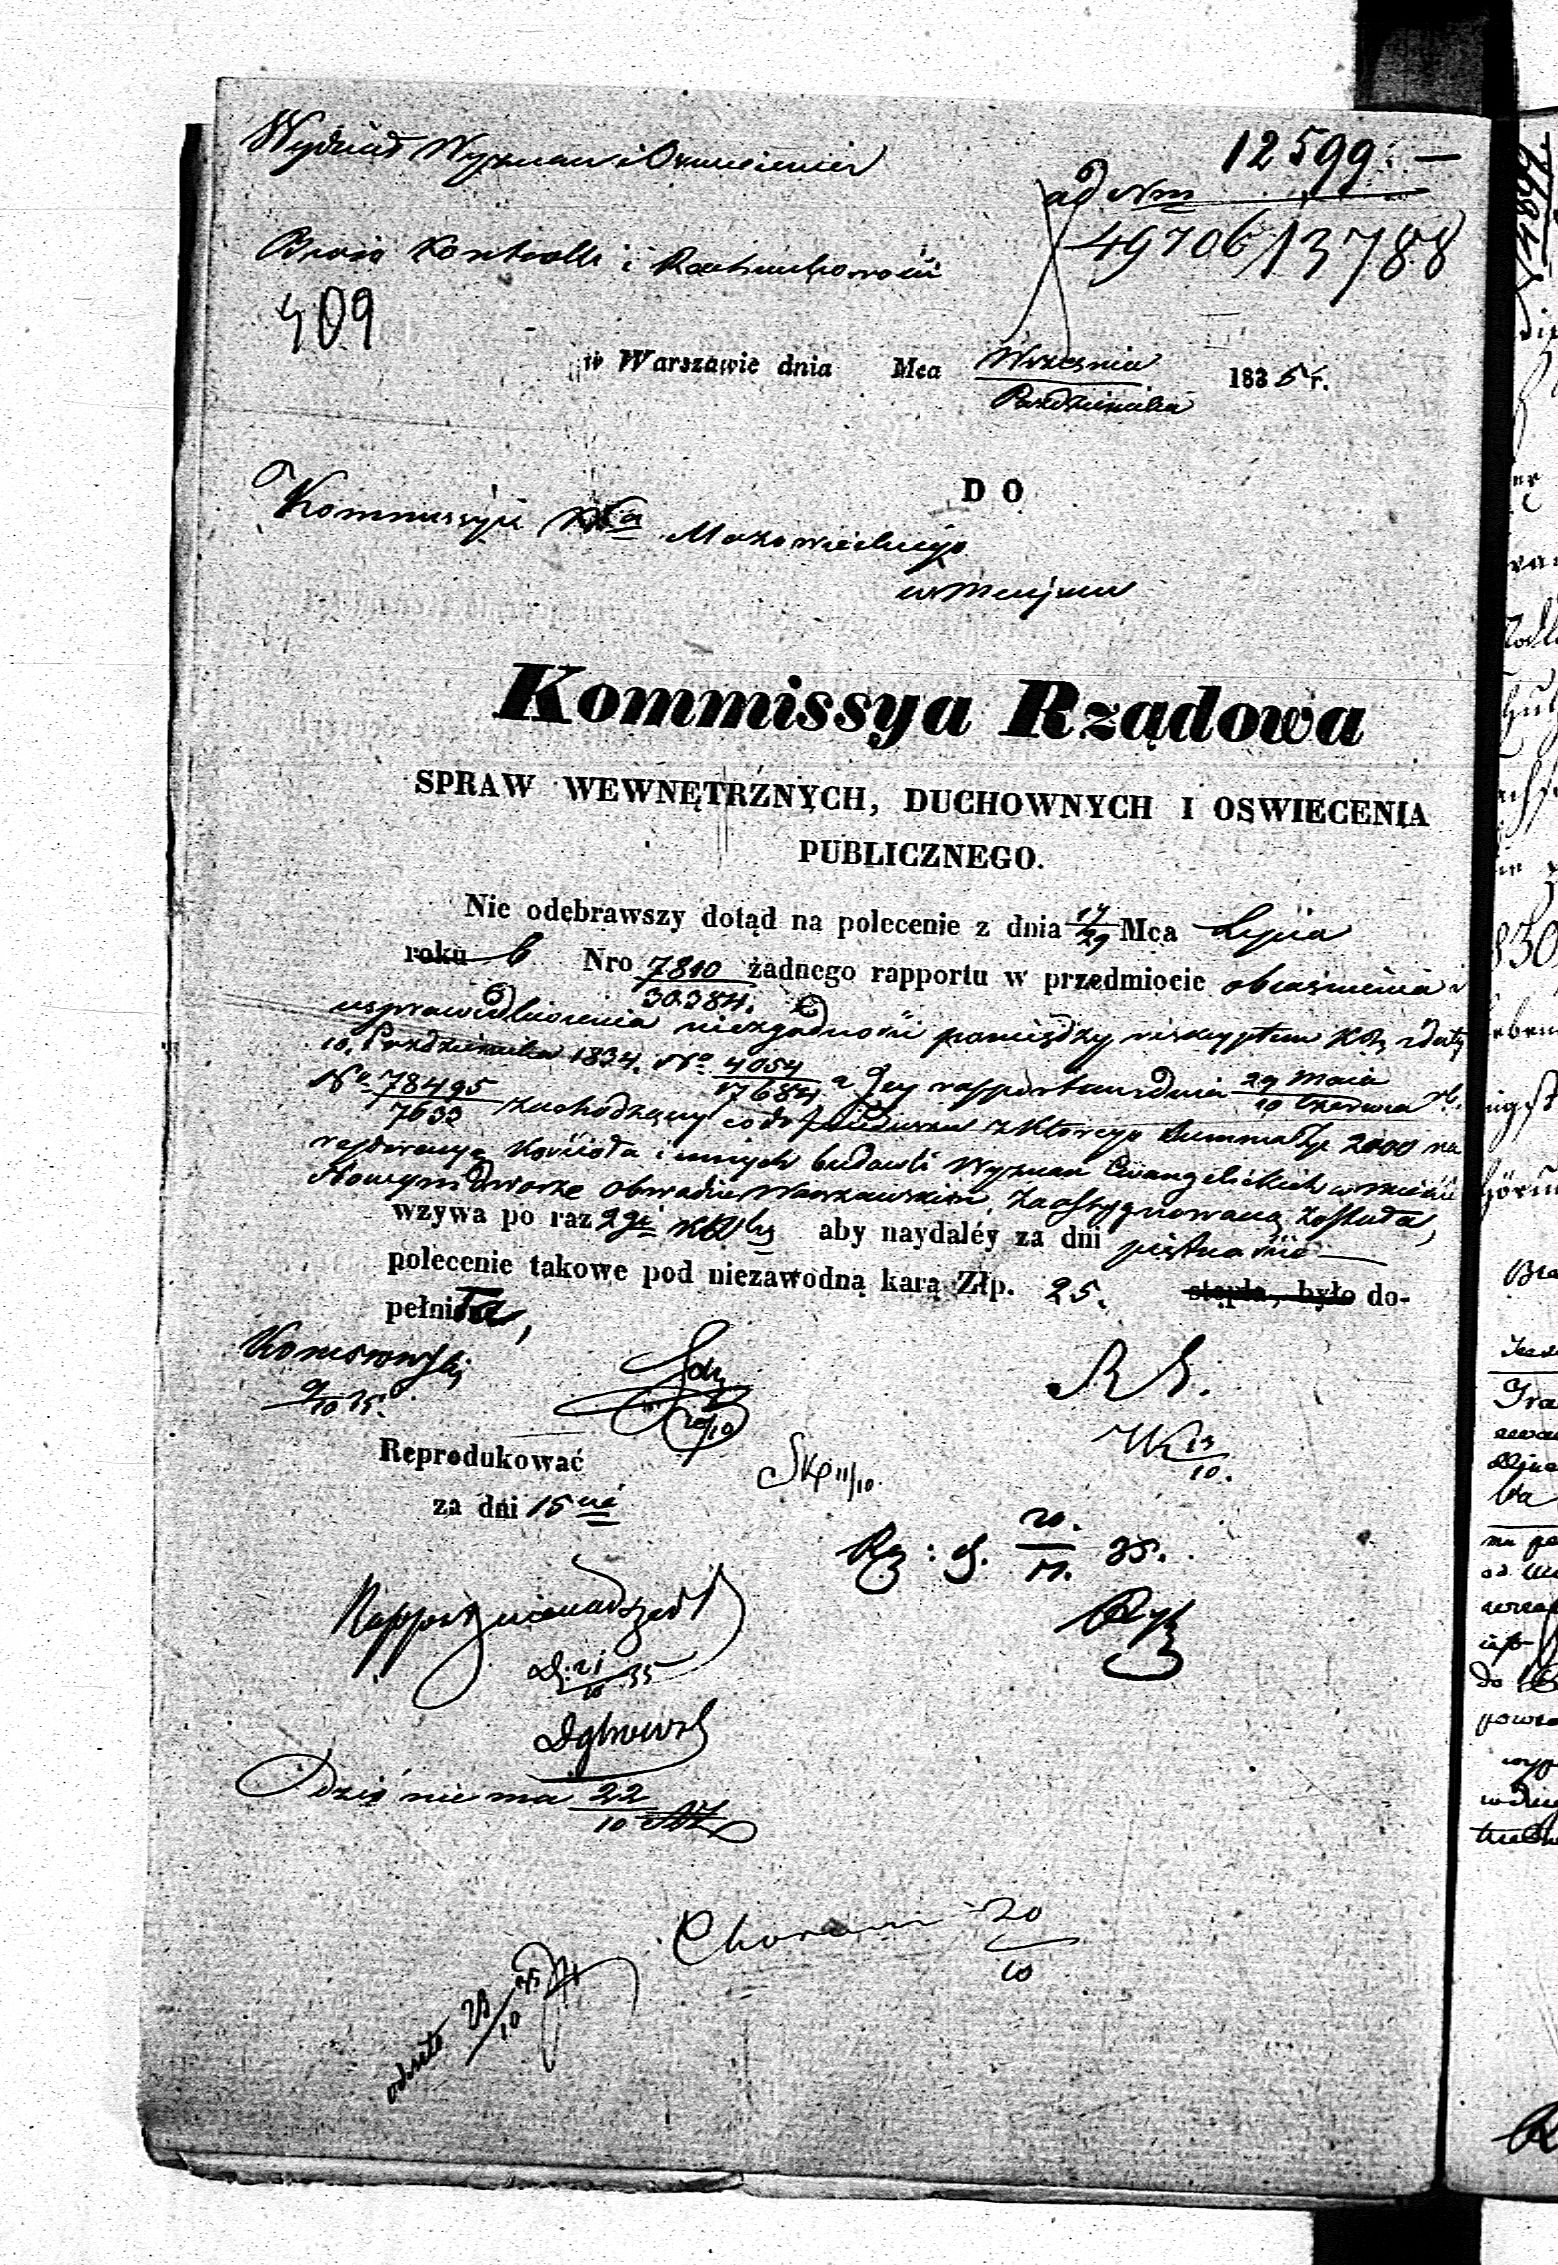 Wydział Wyznań i Oswiecenia
12599.
ad Nrm
49706/13788
Biuro Kontrolli i Rachunkowości
409
w Warszawie dnia Mca Września 1835 r.
Października
DO
Kommissyi Wa Mazowieckiego
w Miejscu
Kommissya Rządowa
SPRAW WEWNĘTRZNYCH, DUCHOWNYCH I OSWIECENIA
PUBLICZNEGO.
Nie odebrawszy dotąd na polecenie z dnia 17/29 Mca Lipca
roku b Nro 7810/30384. żadnego rapportu w przedmiocie obiaśnienia i
usprawiedliwienia niezgodności pomiędzy reskryptem KRz z daty
10. Października 1834. No 4054/17684 a Jey rapportem z dnia 29 Maia/10 Czerwca rb.
No 78495/7633 zachodzącey co do funduszu z którego Summa Złp 2000 na
reperacyą Kościoła i innych budowli Wyznań Ewangelickich w mieście
Nowymdworze Obwodzie Warszawskim, zaassygnowaną została,
wzywa po raz 2gi aby naydaléy za dni piętnaście
polecenie takowe pod niezawodną karą Złp. 25. stępla, było do-
pełniła,
9/10 35.
20/10
R S.
13/10.
Reprodukować
za dni 15cie
Skp 11/10.
20./11. 35.
Rapport nienadszedł
d. 21/10 35
Dziś nie ma 22/10
20/10
odesłto 23/10 35